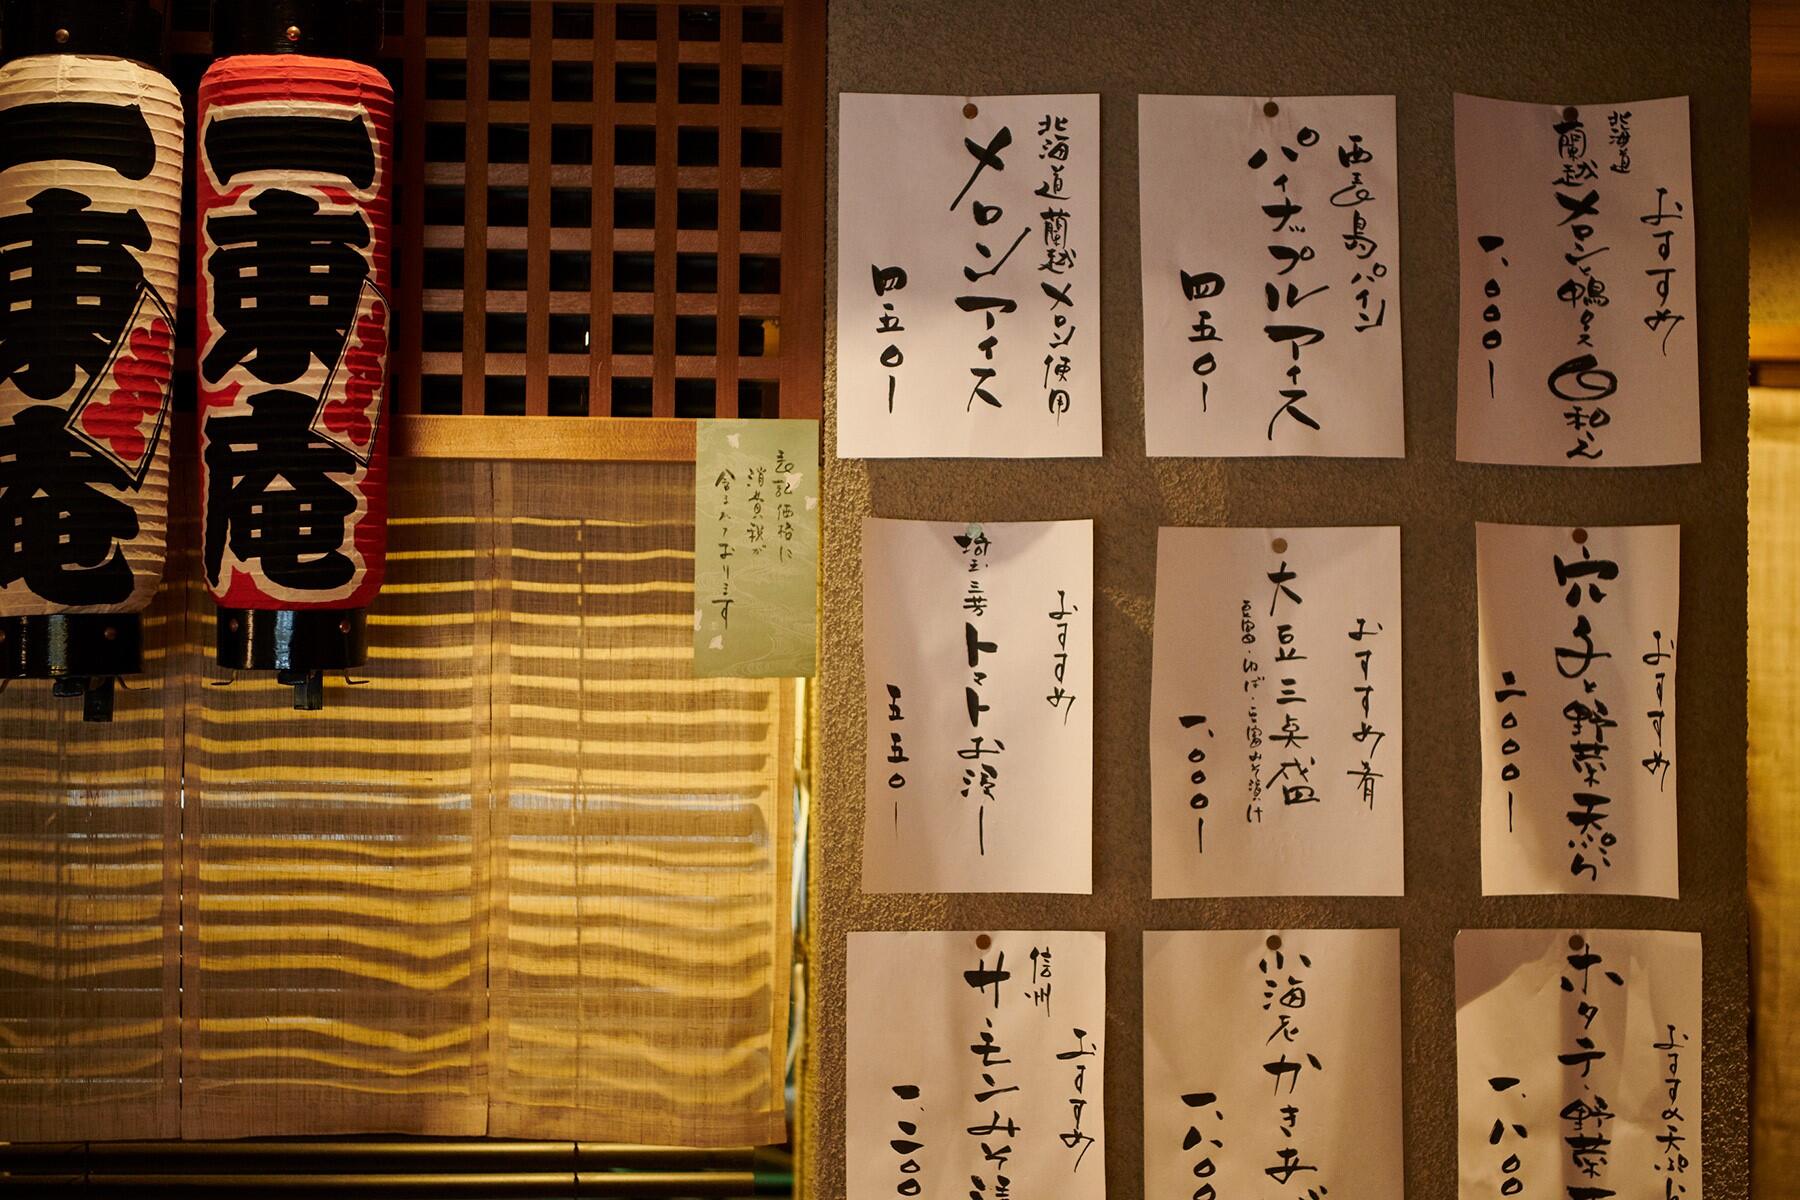 一東庵
一東庵
表記価格に
消費税が
含まれております
北海道蘭越メロン使用
メロンアイス
四五〇ー
西表島パイン
パイナップルアイス
四五〇ー
おすすめ
北海道
蘭越メロンと鴨
和え
一、〇〇〇ー
おすすめ
埼玉三芳トマトお浸し
五五〇ー
おすすめ肴
大豆三点盛
豆腐・ゆば・豆腐みそ漬け
一、〇〇〇ー
おすすめ
穴子と野菜天ぷら
二、〇〇〇ー
おすすめ
信州
サーモンみそ漬
一、二〇〇
小海老かきあげ
一、八〇
おすすめ天ぷら
ホタテ・野菜天
一、八〇〇